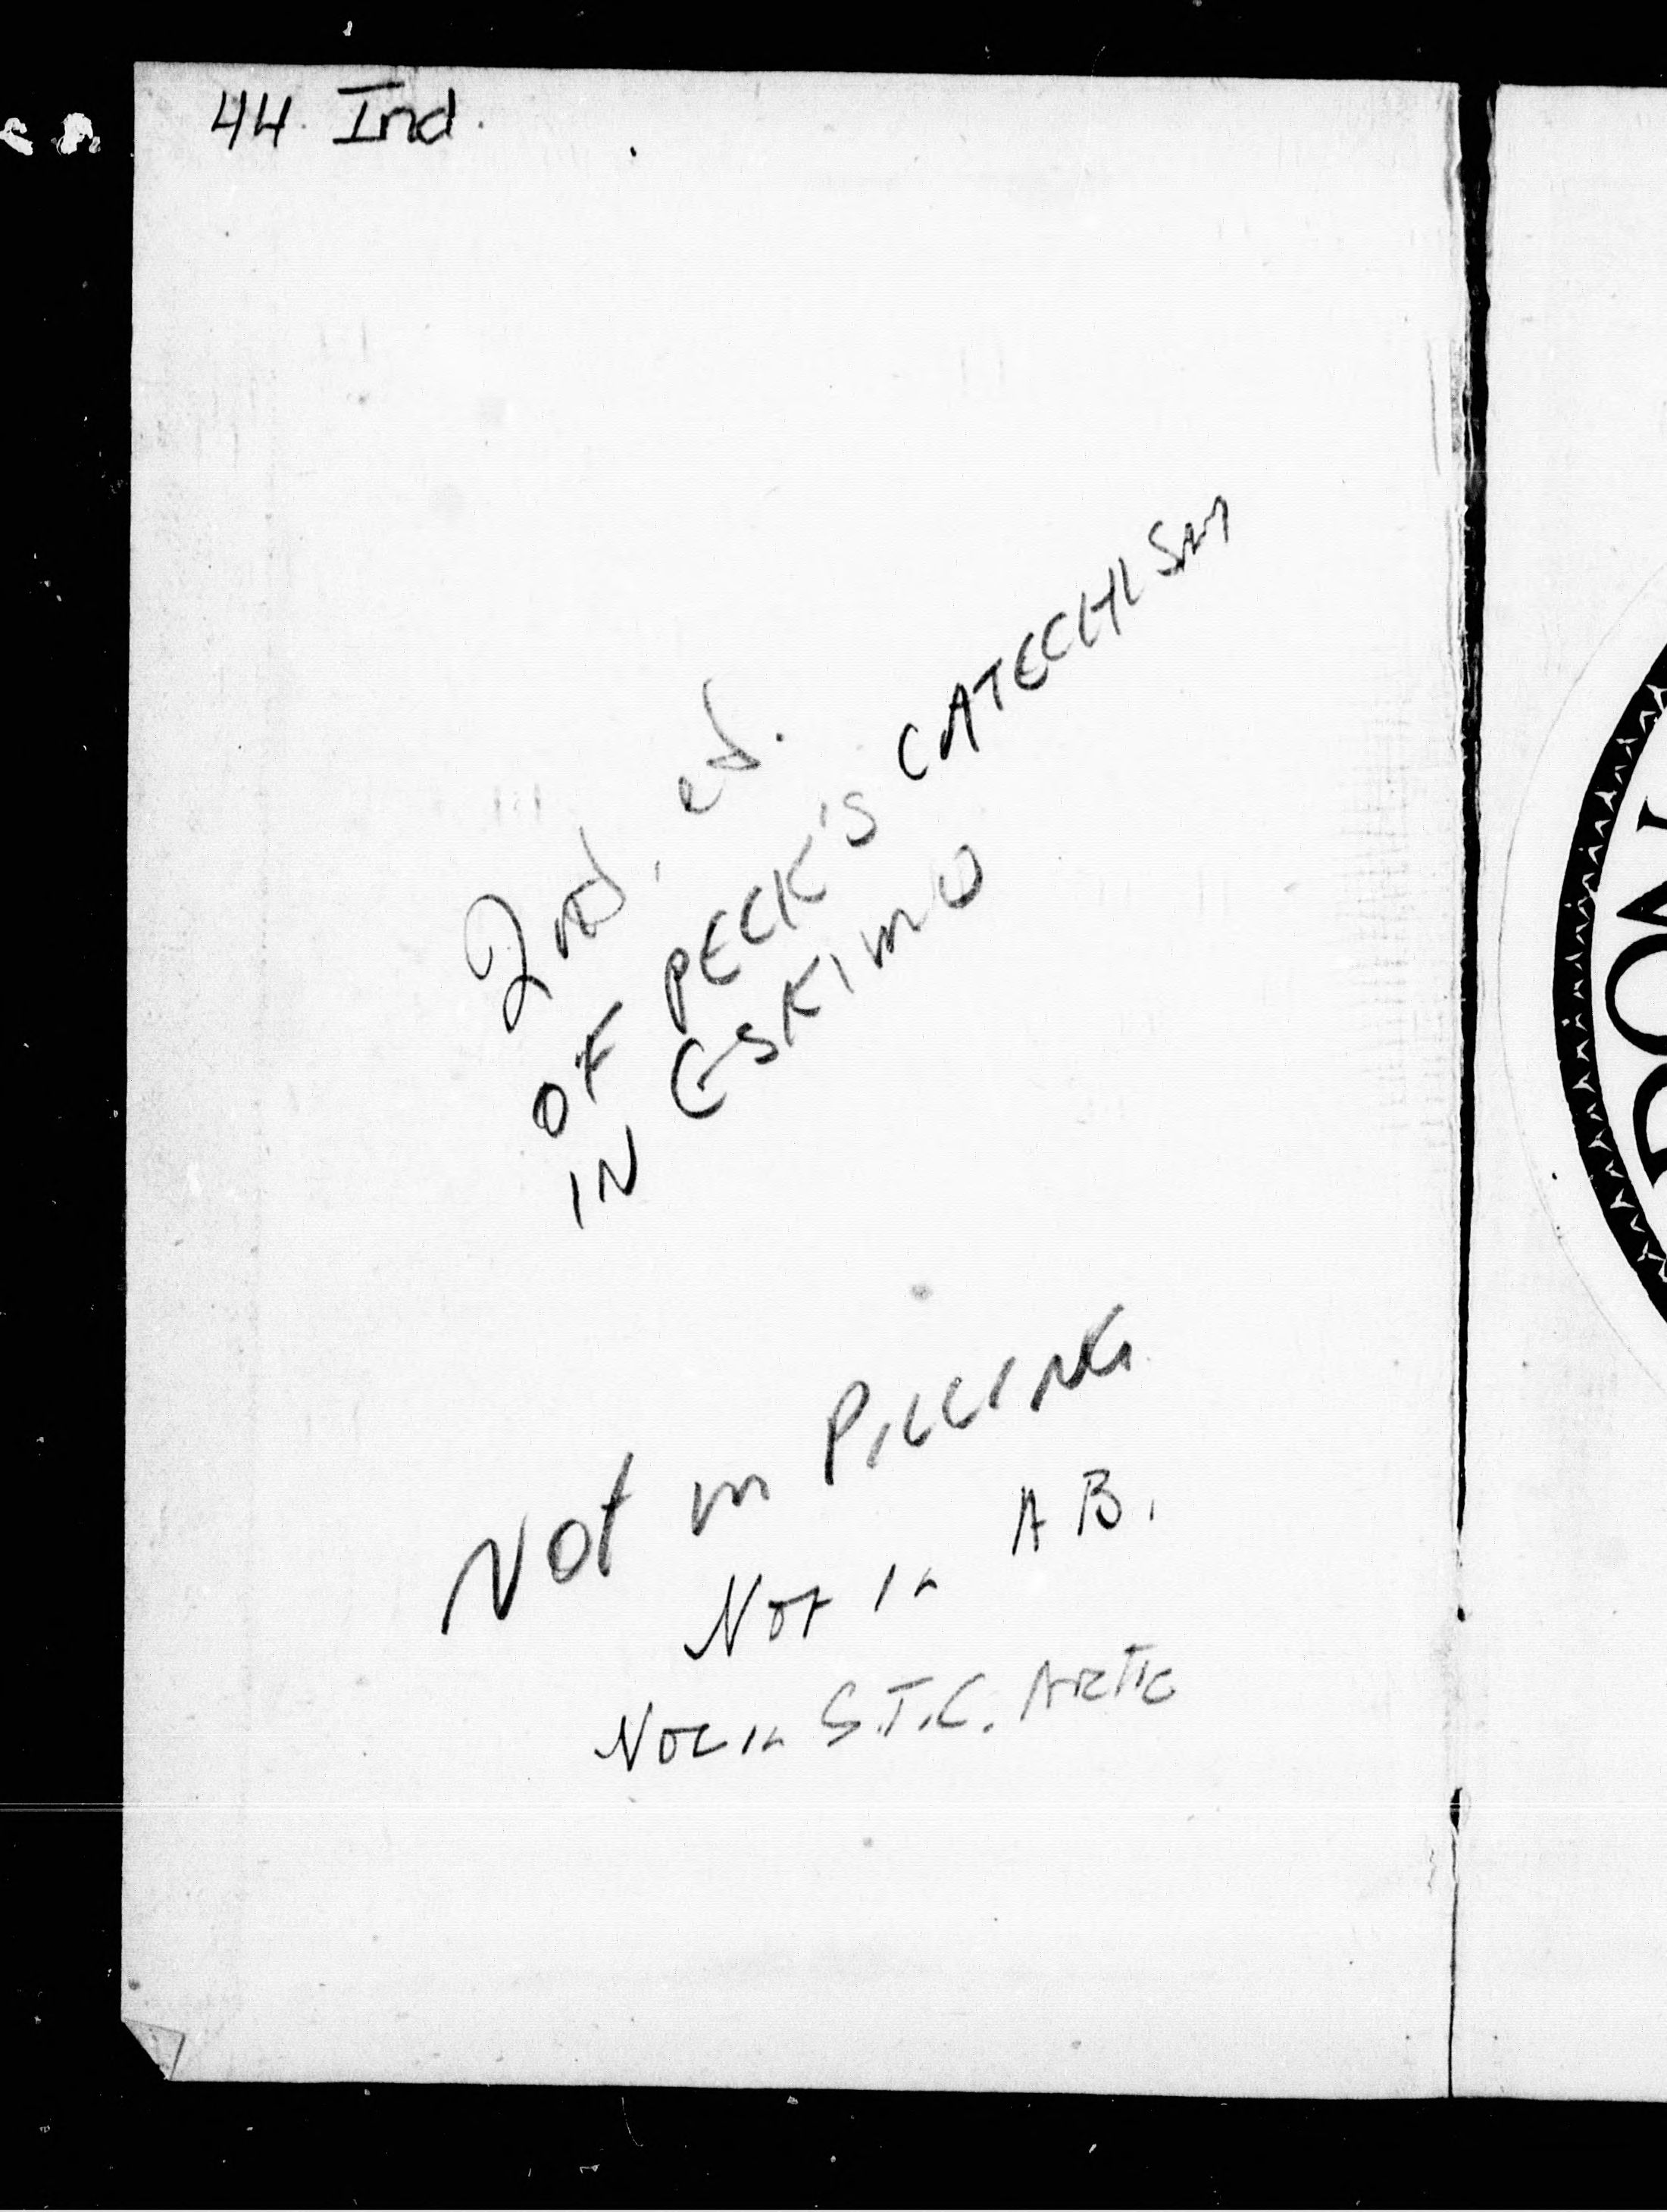 44. Ind.
2nd. ed.
OF PECK'S CATECHISM
IN ESKIMO
Not in PILLING
Not in A B.
Not in S.T.C. Arctic
DON